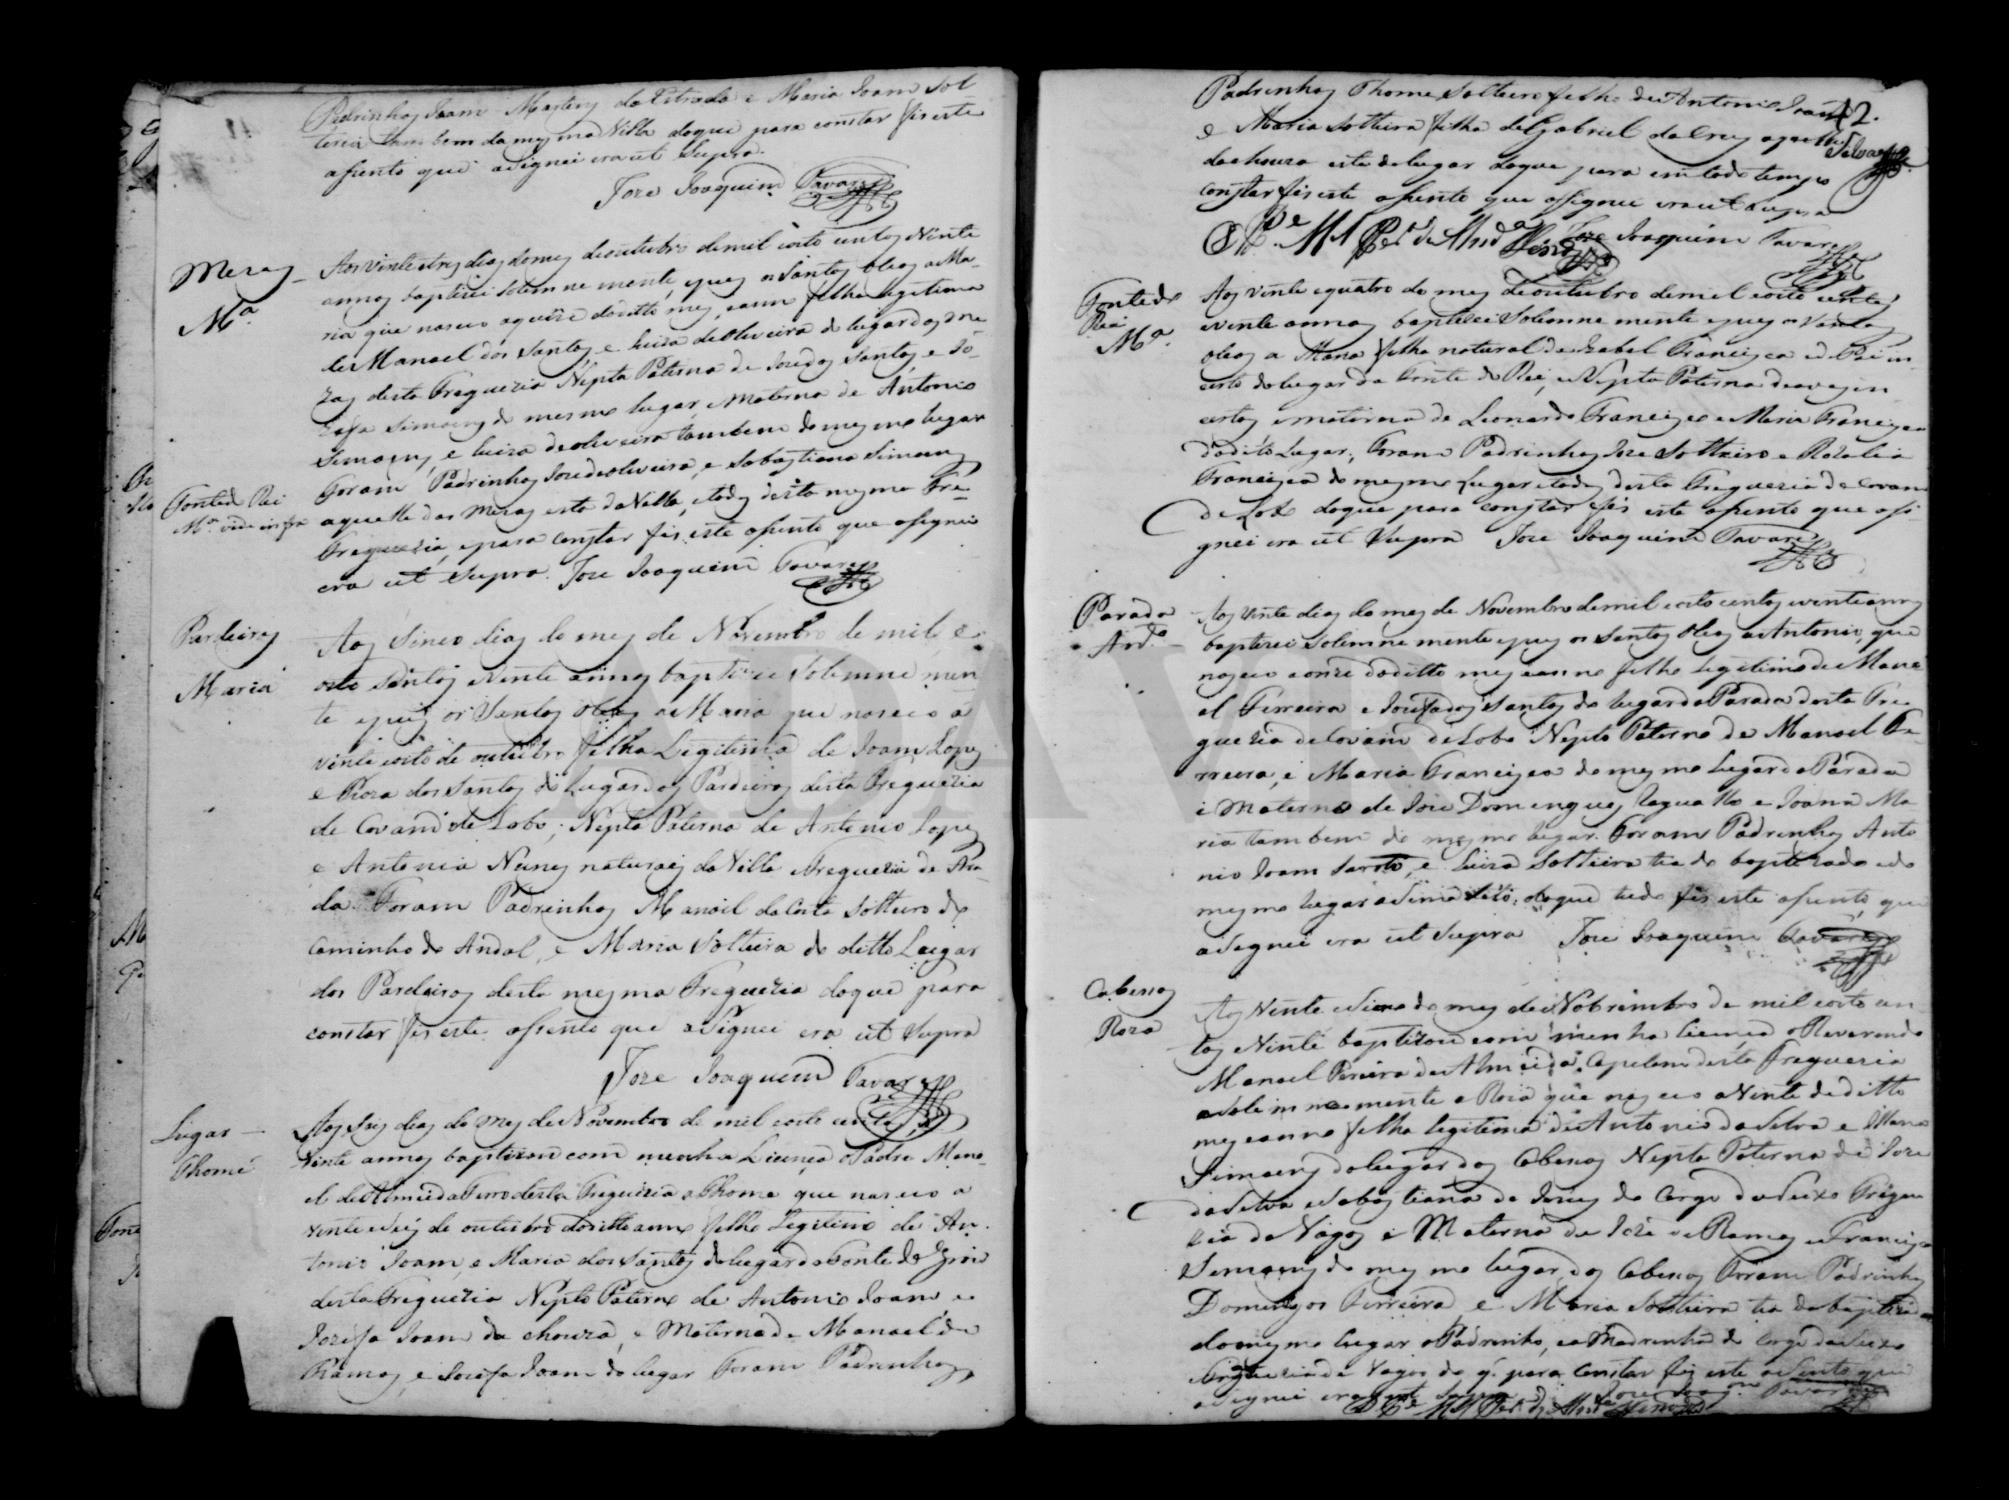 Padrinhos Joam Martins da Estrada e Maria Joam Sol
teira tambem da mesma Villa doque para constar fis este
asento que asignei era ut Supra.
Joze Joaquim Tavares
Mezas
Mª
Aos vinte e tres dias do mes deoutubro demil eoito centos evinte
annos baptizei solemnemente, epuz os Santos oleos a Ma-
ria que nasceo aquinze doditto mes, eanno filha legitima
de Manoel dos Santos, e Luiza deoliveira do lugar das Me-
zas desta Freguezia Nepta Paterna de Joze dos Santos, e Jo-
zefa Simoens do mesmo lugar, e Materna de Antonio
Simoens, e Luiza deoliveira tambem do mesmo lugar
Foram Padrinhos Joze deoliveira, e Sabastiana Simoens
aquelle das Mezas esta da Villa, e todos desta mesma Fre-
guezia, epara constar fis este asento que asignei
era ut Supra. Joze Joaquim Tavares
Fonte d Rei
Mª vide infra
Pardeiros
Maria
Aos Sinco dias do mes de Novembro de mil, e
oito Sentos evinte annos baptizei Solemnemen
te epuz os Santos oleos a Maria que nasceo a
vinte eoito de outubro filha Legitima de Joam Lopes
e Roza dos Santos do Lugar dos Pardeiros desta Freguezia
de Covam de Lobo; Nepta Paterna de Antonio Lopes
e Antonia Nunes naturaes da Villa e Freguezia de
da Foram Padrinhos Manoel da Costa Solteiro do
Caminho do Andal, e Maria Solteira do ditto Lugar
dos Pardeiros desta mesma Freguezia doque para
constar fis este asento que asignei era ut Supra
Joze Joaquim Tavares
Lugar
Thomé
Aos Seis dias do Mes de Novembro de mil eoito centos e
vinte annos baptizou com minha Licença o Padre Mano-
el de Almeida desta Freguezia a Thome que nasceo a
vinte eSeis de outubro doditto anno filho Legitimo de An-
tonio Joam, e Maria dos Santos do lugar da Fonte do Grou
desta Freguezia Nepto Paterno de Antonio Joam, e
Jozefa Joam da chouza, e Materna de Manoel de
Ramos, e Jozefa Joam do lugar Foram Padrinhos
42.
Padrinhos Thome Solteiro filho de Antonio Joam
e Maria Solteira filha de Gabriel da Cruz aquelle
da chouza esta do lugar doque para em todo tempo
constar fis este asento que asignei era ut Supra
Joze Joaquim Tavares
Fonte do
Rei
Mª
Aos vinte equatro do mes deoutubro demil eoito centos
evinte annos baptizei Solemnemente epuz os Santos
oleos a Maria filha natural de Izabel Francisca ed Pai in
certo do lugar da Fonte do Rei, e Nepta Paterna deavos in
certos ematerna de Leonardo Francisco e Maria Francisca
do dito Lugar; Foram Padrinhos Joze Solteiro e Rozalia
Francisca do mesmo Lugar etodos desta Freguezia de Covam
de Lobo doque para constar fis este asento que asi-
gnei era ut Supra Joze Joaquim Tavares
Parada
Antº
Aos vinte dias do mes de Novembro demil eoito centos evinte annos
baptizei Solemnemente epuz os Santos oleos a Antonio, que
nasceo a onze doditto mes eanno filho Legitimo de Mano
el Ferreira e Jozefa dos Santos do lugar da Parada desta Fre
guezia de Covam de Lobo Nepto Paterno de Manoel Fe
rreira, e Maria Francisca do mesmo Lugar da Parada
e Materno de Joze Domingues e Joana Ma
ria tambem do mesmo lugar. Foram Padrinhos Anto
nio Joam, e Luiza Solteira tia do baptizado edo
mesmo lugar asima dito; doque tudo fis este asento, que
asignei era ut Supra Joze Joaquim Tavares
Cabesos
Roza
Aos Vinte e Sinco do mes de Novembro de mil eoito cen
tos evinte baptizou com minha licença o Reverendo
Manoel Pereira de Almeida Capelam desta Freguezia
eSolemnemente a Roza que nasceo a Vinte do ditto
mes eanno filha legitima de Antonio da Silva e Maria
Simoens do lugar dos Cabesos Nepta Paterna de Joze
da Silva e Sabastiana de Jesus do Corgo do Seixo Fregue
zia de Vagos e Materna de Joze de Ramos e Francisca
Simoens do mesmo lugar dos Cabesos Foram Padrinhos
Domingos Ferreira, e Maria Solteira tia da baptiza-
da do mesmo lugar o Padrinho, e a Madrinha do Corgo do Seixo
Freguezia de Vagos do q. para constar fis este asento que
asignei era ut Supra Joze Joaqm Tavares
ADAVR